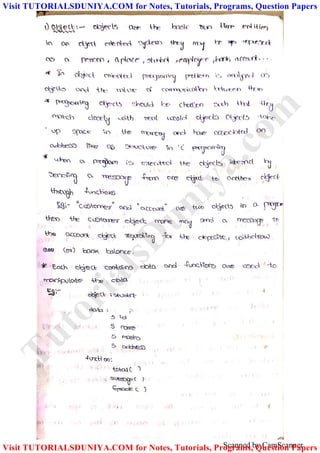 Visit TUTORIALSDUNIYA.COM for Notes, Tutorials, Programs, Question Papers
1) Object:- objects are the basic run time entities
in an object oriented system they may
as a person, a place, student, employee, bank, account...
* In object oriented programing problem is analyzed as
objects and the nature of communication between them
* programing objects should be chosen such that they
match closely with real world objects objects take
up space in the memory and have associated an
address like as structure in 'c' programing
* when a program is executed the objects interact by
Sending a message from one object to another object
through functions
Eg:- "Customer" and "account" are two objects in a program
then the customer object name may send a message to
the account object requesting for the deposite, withdraw
(or) bank balance.
* Each object contains data and functions are used to
manipulate the data
Eg:-
object: student
data:
S id
S name
S marks
S address
function:
total( )
average( )
Grade( )
TutorialsDuniya.com
Scanned by CamScanner
Visit TUTORIALSDUNIYA.COM for Notes, Tutorials, Programs, Question Papers